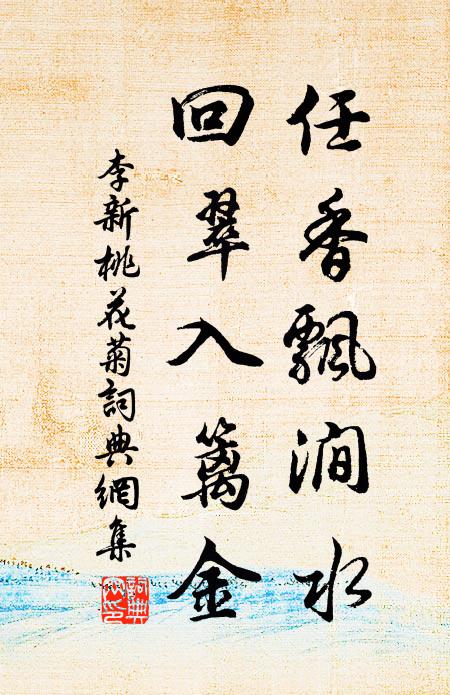 任香飄澗水
回翠入籬金
李新桃花菊詞典網集